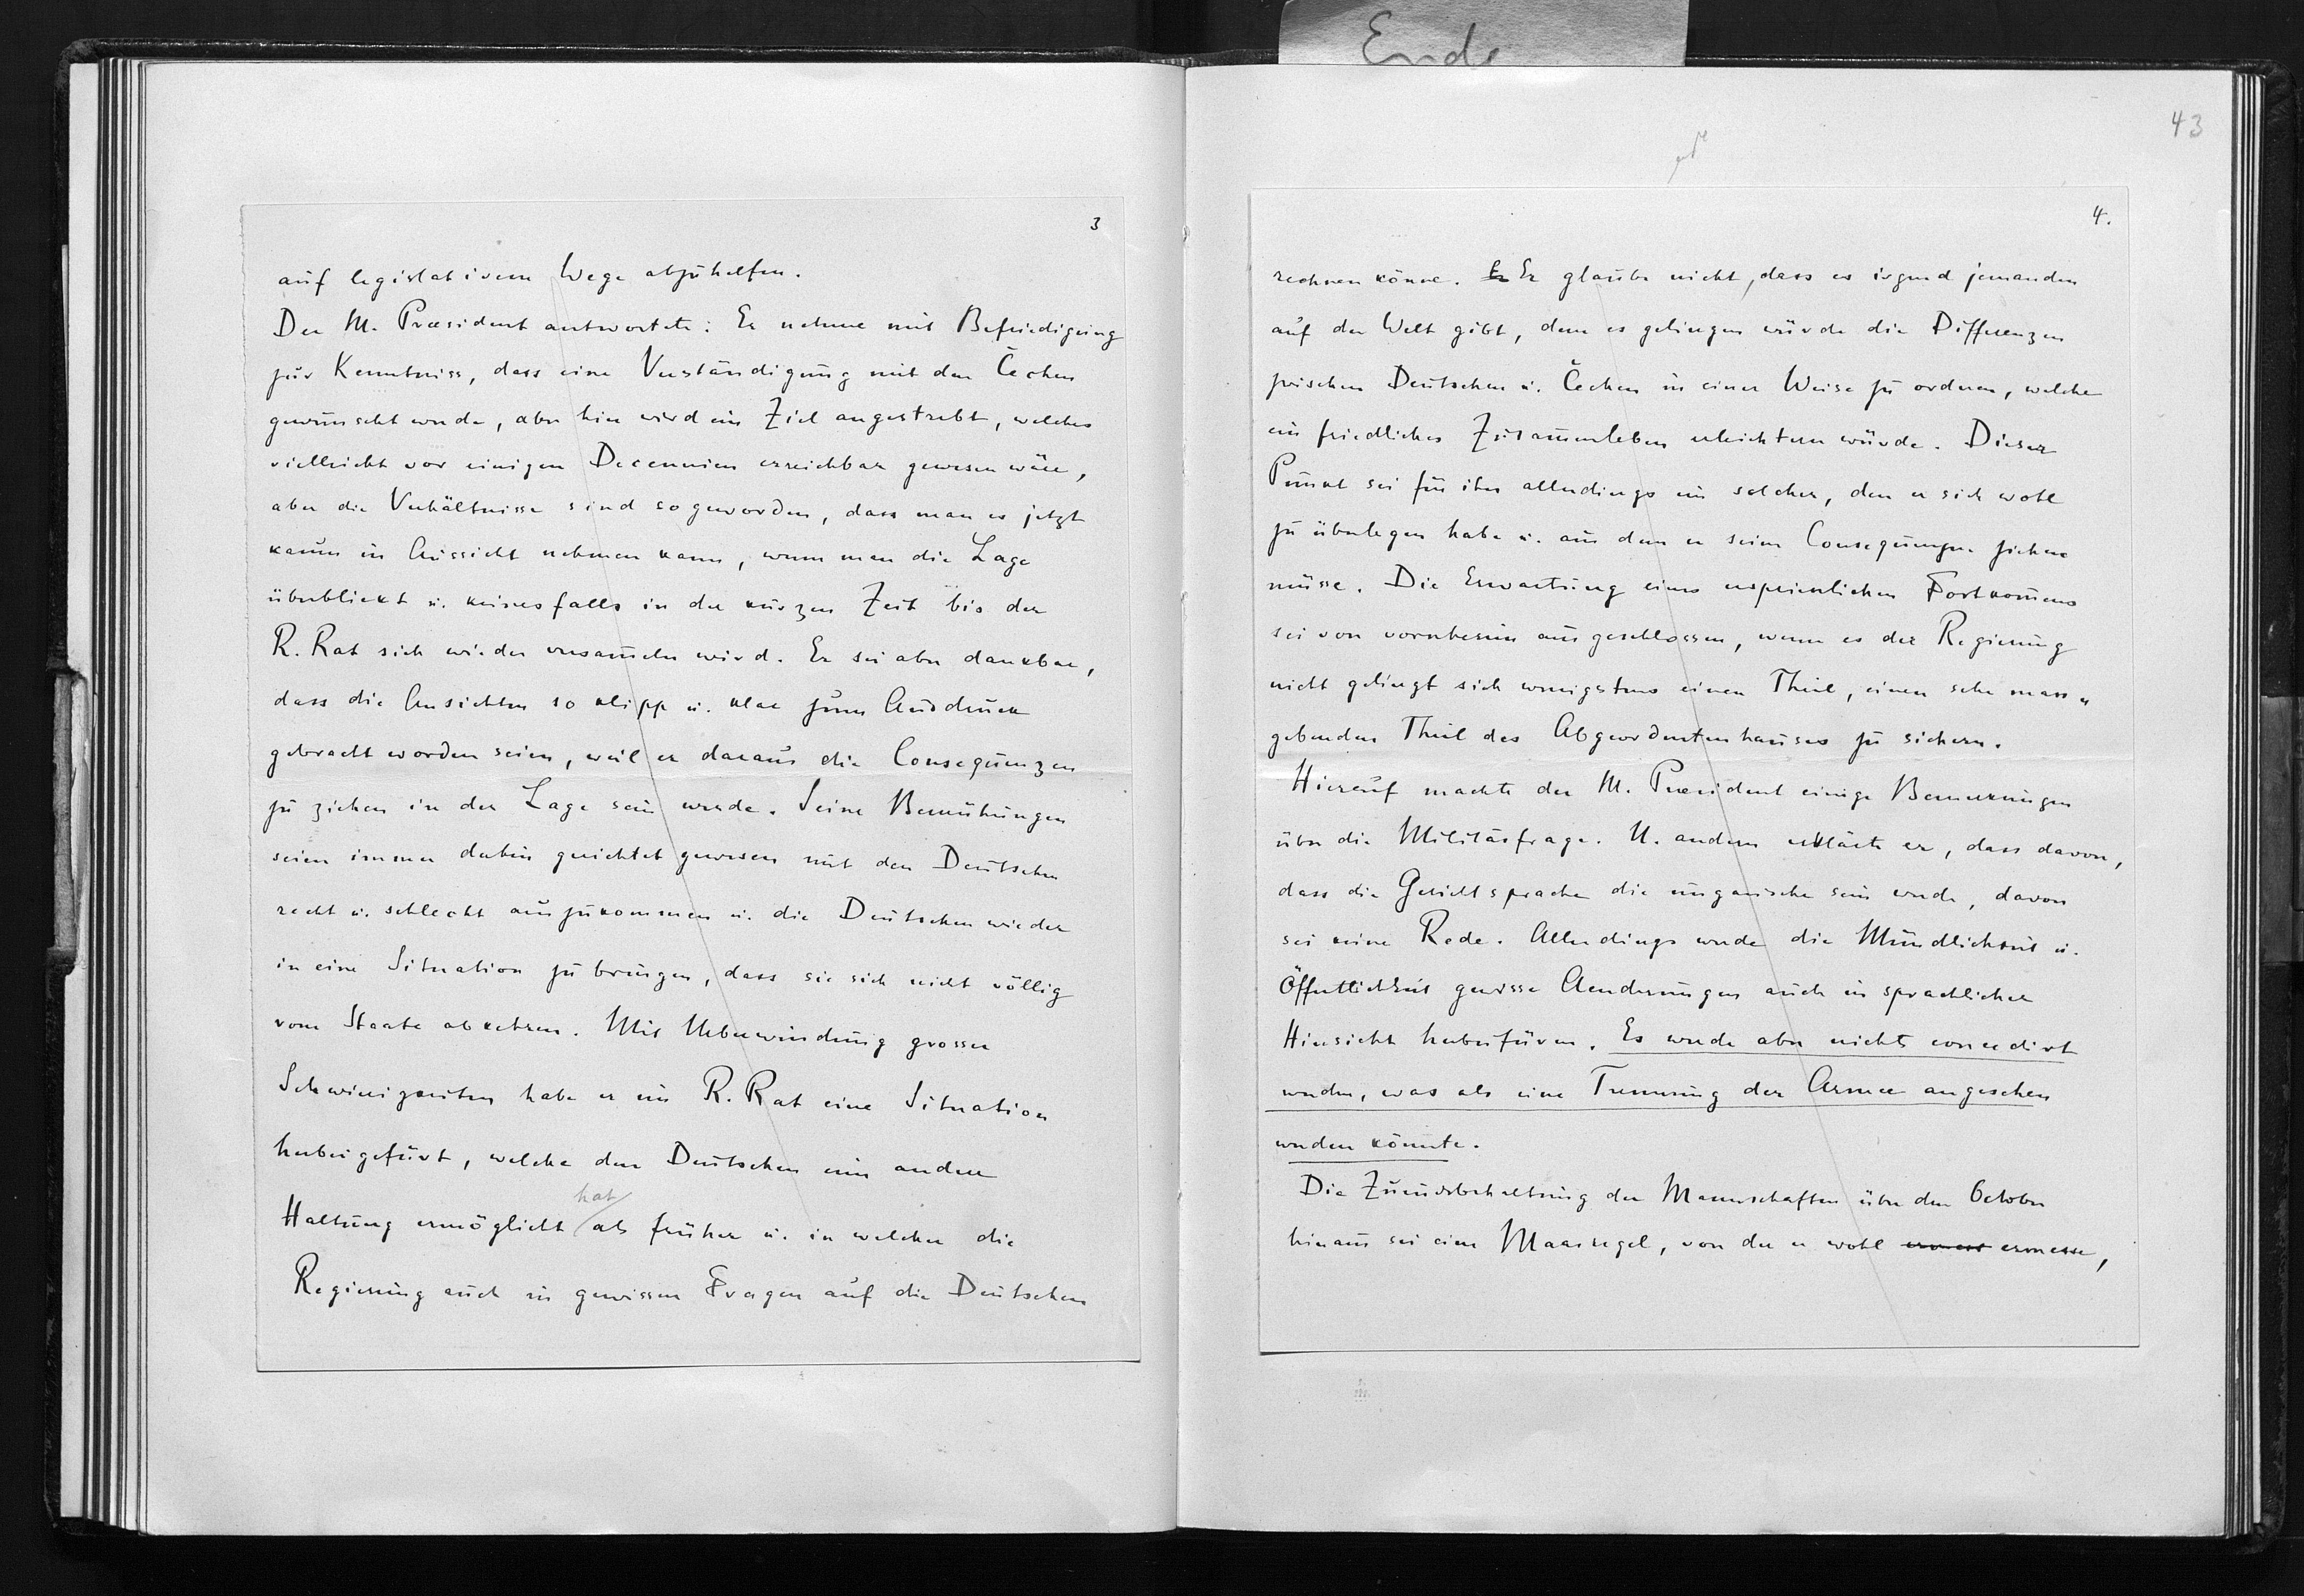 Ende
43
3
auf legislativem Wege abzuhelfen.
Der M. Præsident antwortete: Er nehme mit Befriedigung
zur Kenntniss, dass eine Verständigung mit den Čechen
gewünscht werde, aber hier wird ein Ziel angestrebt, welches
vielleicht vor einigen Decennien erreichbar gewesen wäre,
aber die Verhältnisse sind so geworden, dass man es jetzt
kaum in Aussicht nehmen kann, wenn man die Lage
überblickt u. keinesfalls in der kurzen Zeit bis der
R. Rat sich wieder versam̄eln wird. Er sei aber dankbar,
dass die Ansichten so klipp u. klar zum Ausdruck
gebracht worden seien, weil er daraus die Consequenzen
zu ziehen in der Lage sein werde. Seine Bemühungen
seien immer dahin gerichtet gewesen mit den Deutschen
recht u. schlecht auszukommen u. die Deutschen wieder
in eine Situation zu bringen, dass sie sich nicht völlig
vom Staate abkehren. Mit Ueberwindung grosser
Schwierigkeiten habe er im R. Rat eine Situation
herbeigefürt, welche den Deutschen eine andere
hat
Haltung ermöglicht als früher u. in welcher die
Regierung auch in gewissen Fragen auf die Deutschen
4.
rechnen könne. Er Er glaube nicht, dass es irgend jemanden
auf der Welt gibt, dem es gelingen würde die Differenzen
zwischen Deutschen u. Čechen in einer Weise zu ordnen, welche
ein friedliches Zusam̄enleben erleichtern würde. Dieser
Punkt sei für ihn allerdings ein solcher, den er sich wohl
zu überlegen habe u. aus dem er seine Consequenzen ziehen
müsse. Die Erwartung eines erspriesslichen Fortkom̄ens
sei von vornherein ausgeschlossen, wenn es der Regierung
nicht gelingt sich wenigstens einen Theil, einen sehr mass„
gebenden Theil des Abgeordnetenhauses zu sichern.
Hierauf machte der M. Præsident einige Bemerkungen
über die Militärfrage. U. andern erklärte er, dass davon,
dass die Gerichtsprache die ungarische sein werde, davon
sei keine Rede. Allerdings werde die Mündlichkeit u.
Öffentlichkeit gewisse Aenderungen auch in sprachlicher
Hinsicht herbeifüren. Es werde aber nichts concedirt
werden, was als eine Trennung der Armee angesehen
werden könnte.
Die Zurückbehaltung der Mannschaften über den October
hinaus sei eine Maasregel, von der er wohl ermess ermesse,